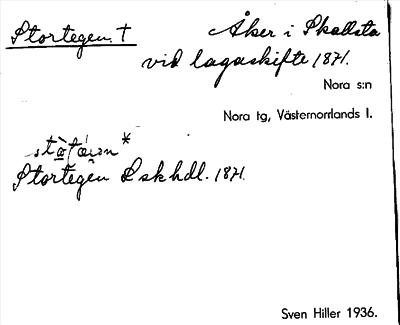 Stortegen. †
Åker i Skallsta
vid lagaskifte 1871.
Nora s:n
Nora tg, Västernorrlands l.
Stortegen Lskhdl. 1871.
Sven Hiller 1936.